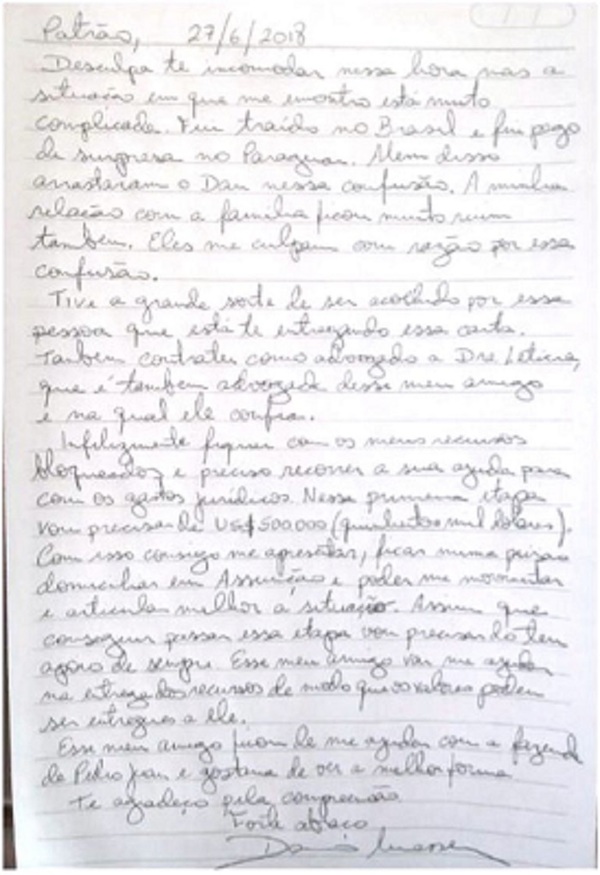 Patrão, 27/6/2018
Desculpa te incomodar nessa hora mas a
situação em que me encontro está muito
complicada. Fui traído no Brasil e fui pego
de surpresa no Paraguai. Alem disso
arrastaram o Dan nessa confusão. A minha
relação com a família ficou muito ruim
tambem. Eles me culpam com razão por essa
confusão.
Tive a grande sorte de ser acolhido por essa
pessoa que está te entregando essa carta.
Tambem contratei como advogado a Dra Leticia,
que é tambem advogada desse meu amigo
e na qual ele confia.
Infelizmente fiquei com os meus recursos
bloqueados e preciso recorrer a sua ajuda para
com os gastos jurídicos. Nessa primeira etapa
vou precisar de US$ 500.000 (quinhentos mil dólares).
Com isso consigo me apresentar, ficar numa prisão
domiciliar em Assunção e poder me movimentar
e articular melhor a situação. Assim que
conseguir passar essa etapa vou precisar do
agora de sempre. Esse meu amigo vai me ajudar
na entrega dos recursos de modo que os valores podem
ser entregues a ele.
Esse meu amigo ficou de me ajudar com a fazenda
de Pedro Juan e gostaria de ver a melhor forma
Te agradeço pela compreensão
Forte abraço